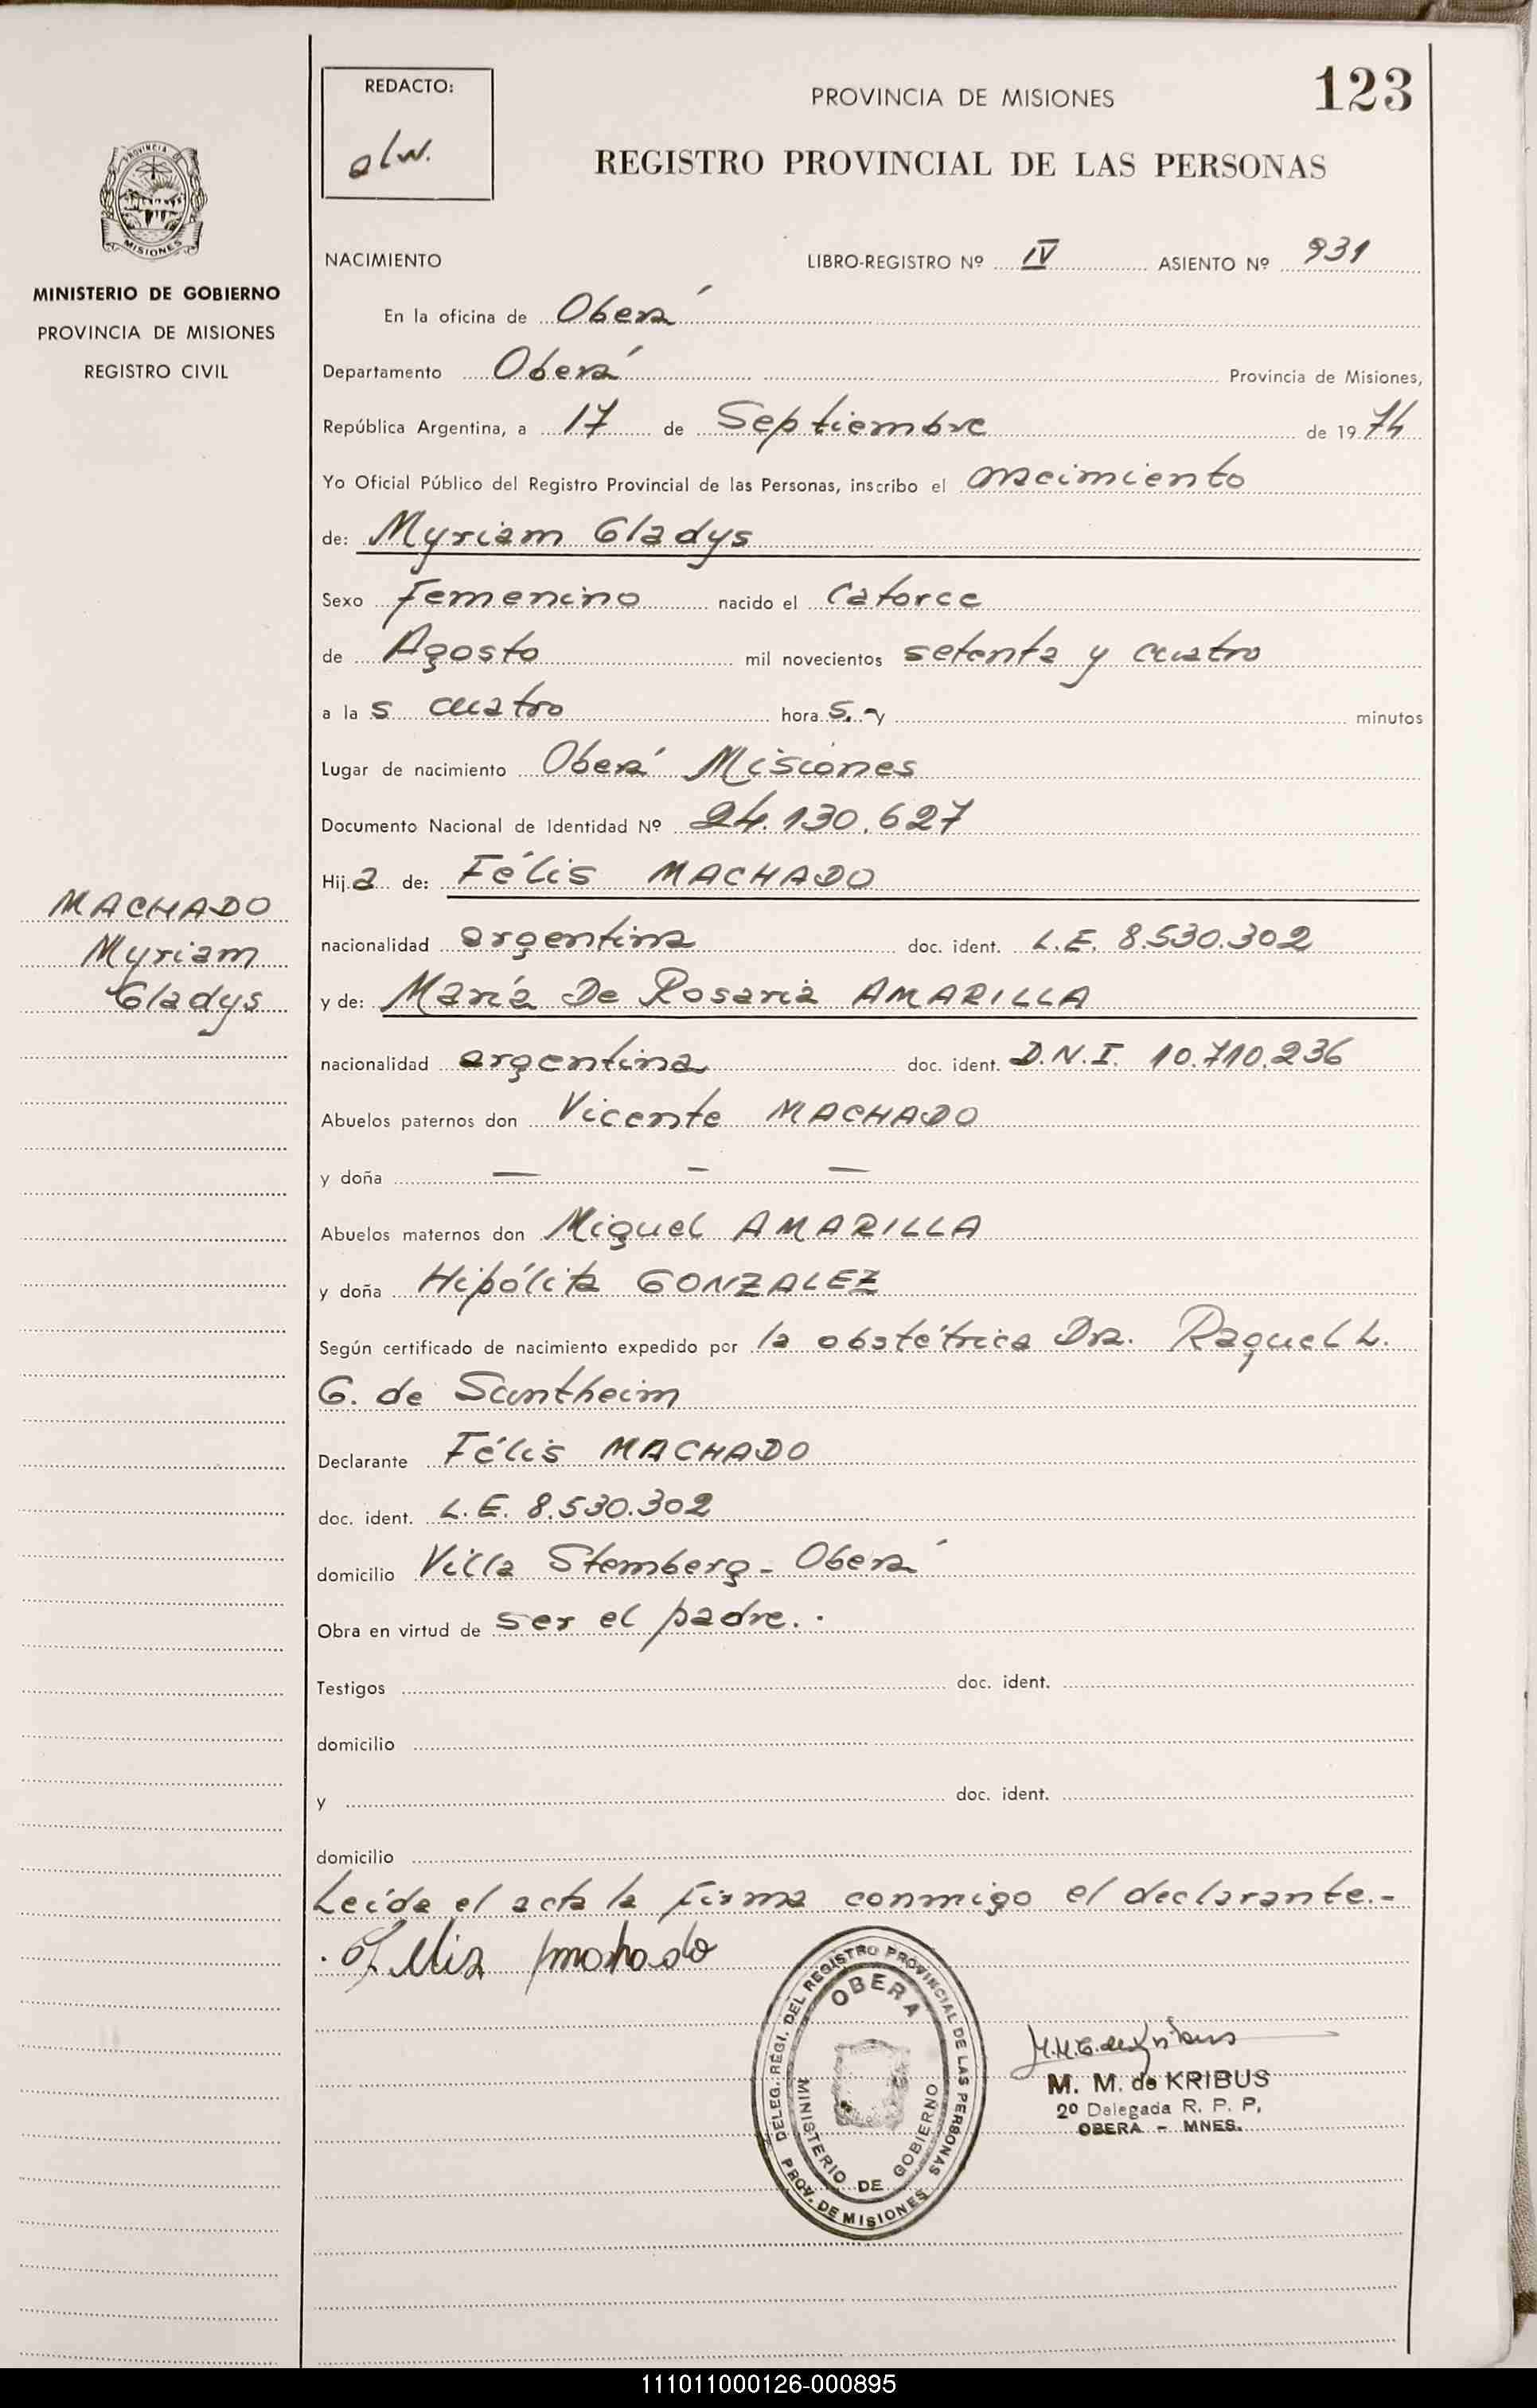 123
REDACTO:
alw.
PROVINCIA DE MISIONES
REGISTRO PROVINCIAL DE LAS PERSONAS
PROVINCIA DE
MISIONES
MINISTERIO DE GOBIERNO
PROVINCIA DE MISIONES
REGISTRO CIVIL
NACIMIENTO LIBRO-REGISTRO Nº IV ASIENTO Nº 931
En la oficina de Oberá
Departamento Oberá Provincia de Misiones,
República Argentina, a 17 de Septiembre de 1974
Yo Oficial Público del Registro Provincial de las Personas, inscribo el nacimiento
de: Myriam Gladys
Sexo Femenino nacido el Catorce
de Agosto mil novecientos setenta y cuatro
a las cuatro horas. y minutos
Lugar de nacimiento Oberá Misiones
Documento Nacional de Identidad Nº 24.130.627
Hija de: Félis MACHADO
MACHADO
Myriam
Gladys
nacionalidad argentina doc. ident. L.E. 8.530.302
y de: María De Rosaria AMARILLA
nacionalidad argentina doc. ident. D.N.I. 10.710.236
Abuelos paternos don Vicente MACHADO
y doña — — —
Abuelos maternos don Miguel AMARILLA
y doña Hipólita GONZALEZ
Según certificado de nacimiento expedido por la obstétrica Dra. Raquel L.
G. de Santheim
Declarante Félis MACHADO
doc. ident. L.E. 8.530.302
domicilio Villa Stemberg - Oberá
Obra en virtud de ser el padre. .
Testigos doc. ident.
domicilio
y doc. ident.
domicilio
Leída el acta la firma conmigo el declarante.-
DELEG. REGI. DEL REGISTRO PROVINCIAL DE LAS PERSONAS
OBERA
MINISTERIO DE GOBIERNO
PROV. DE MISIONES
M. M. de KRIBUS
2º Delegada R. P. P,
OBERA - MNES.
111011000126-000895